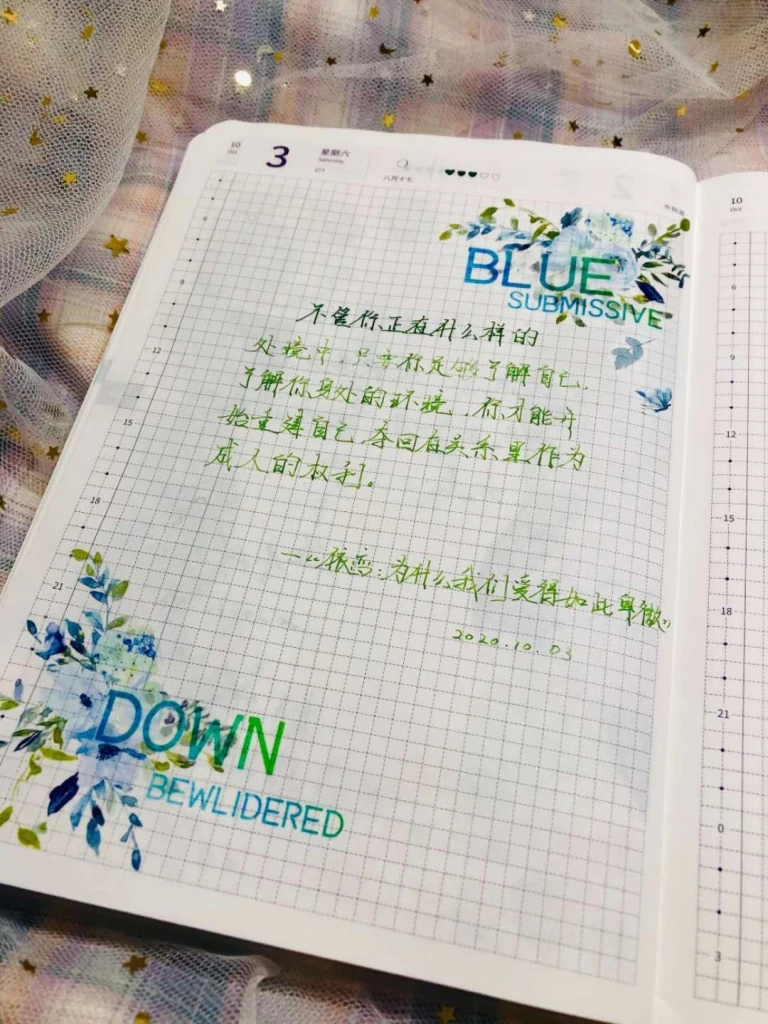 10
Oct
3
星期六
Saturday
277
八月十七
BLUE
SUBMISSIVE
不管你正在什么样的
处境中，只有你足够了解自己，
了解你身处的环境，你才能开
始重建自己，夺回在关系里作为
成人的权利。
——《依恋：为什么我们爱得如此卑微》
2020.10.03
DOWN
BEWLIDERED
6
9
12
15
18
21
10
Oct
6
9
12
15
18
21
0
3